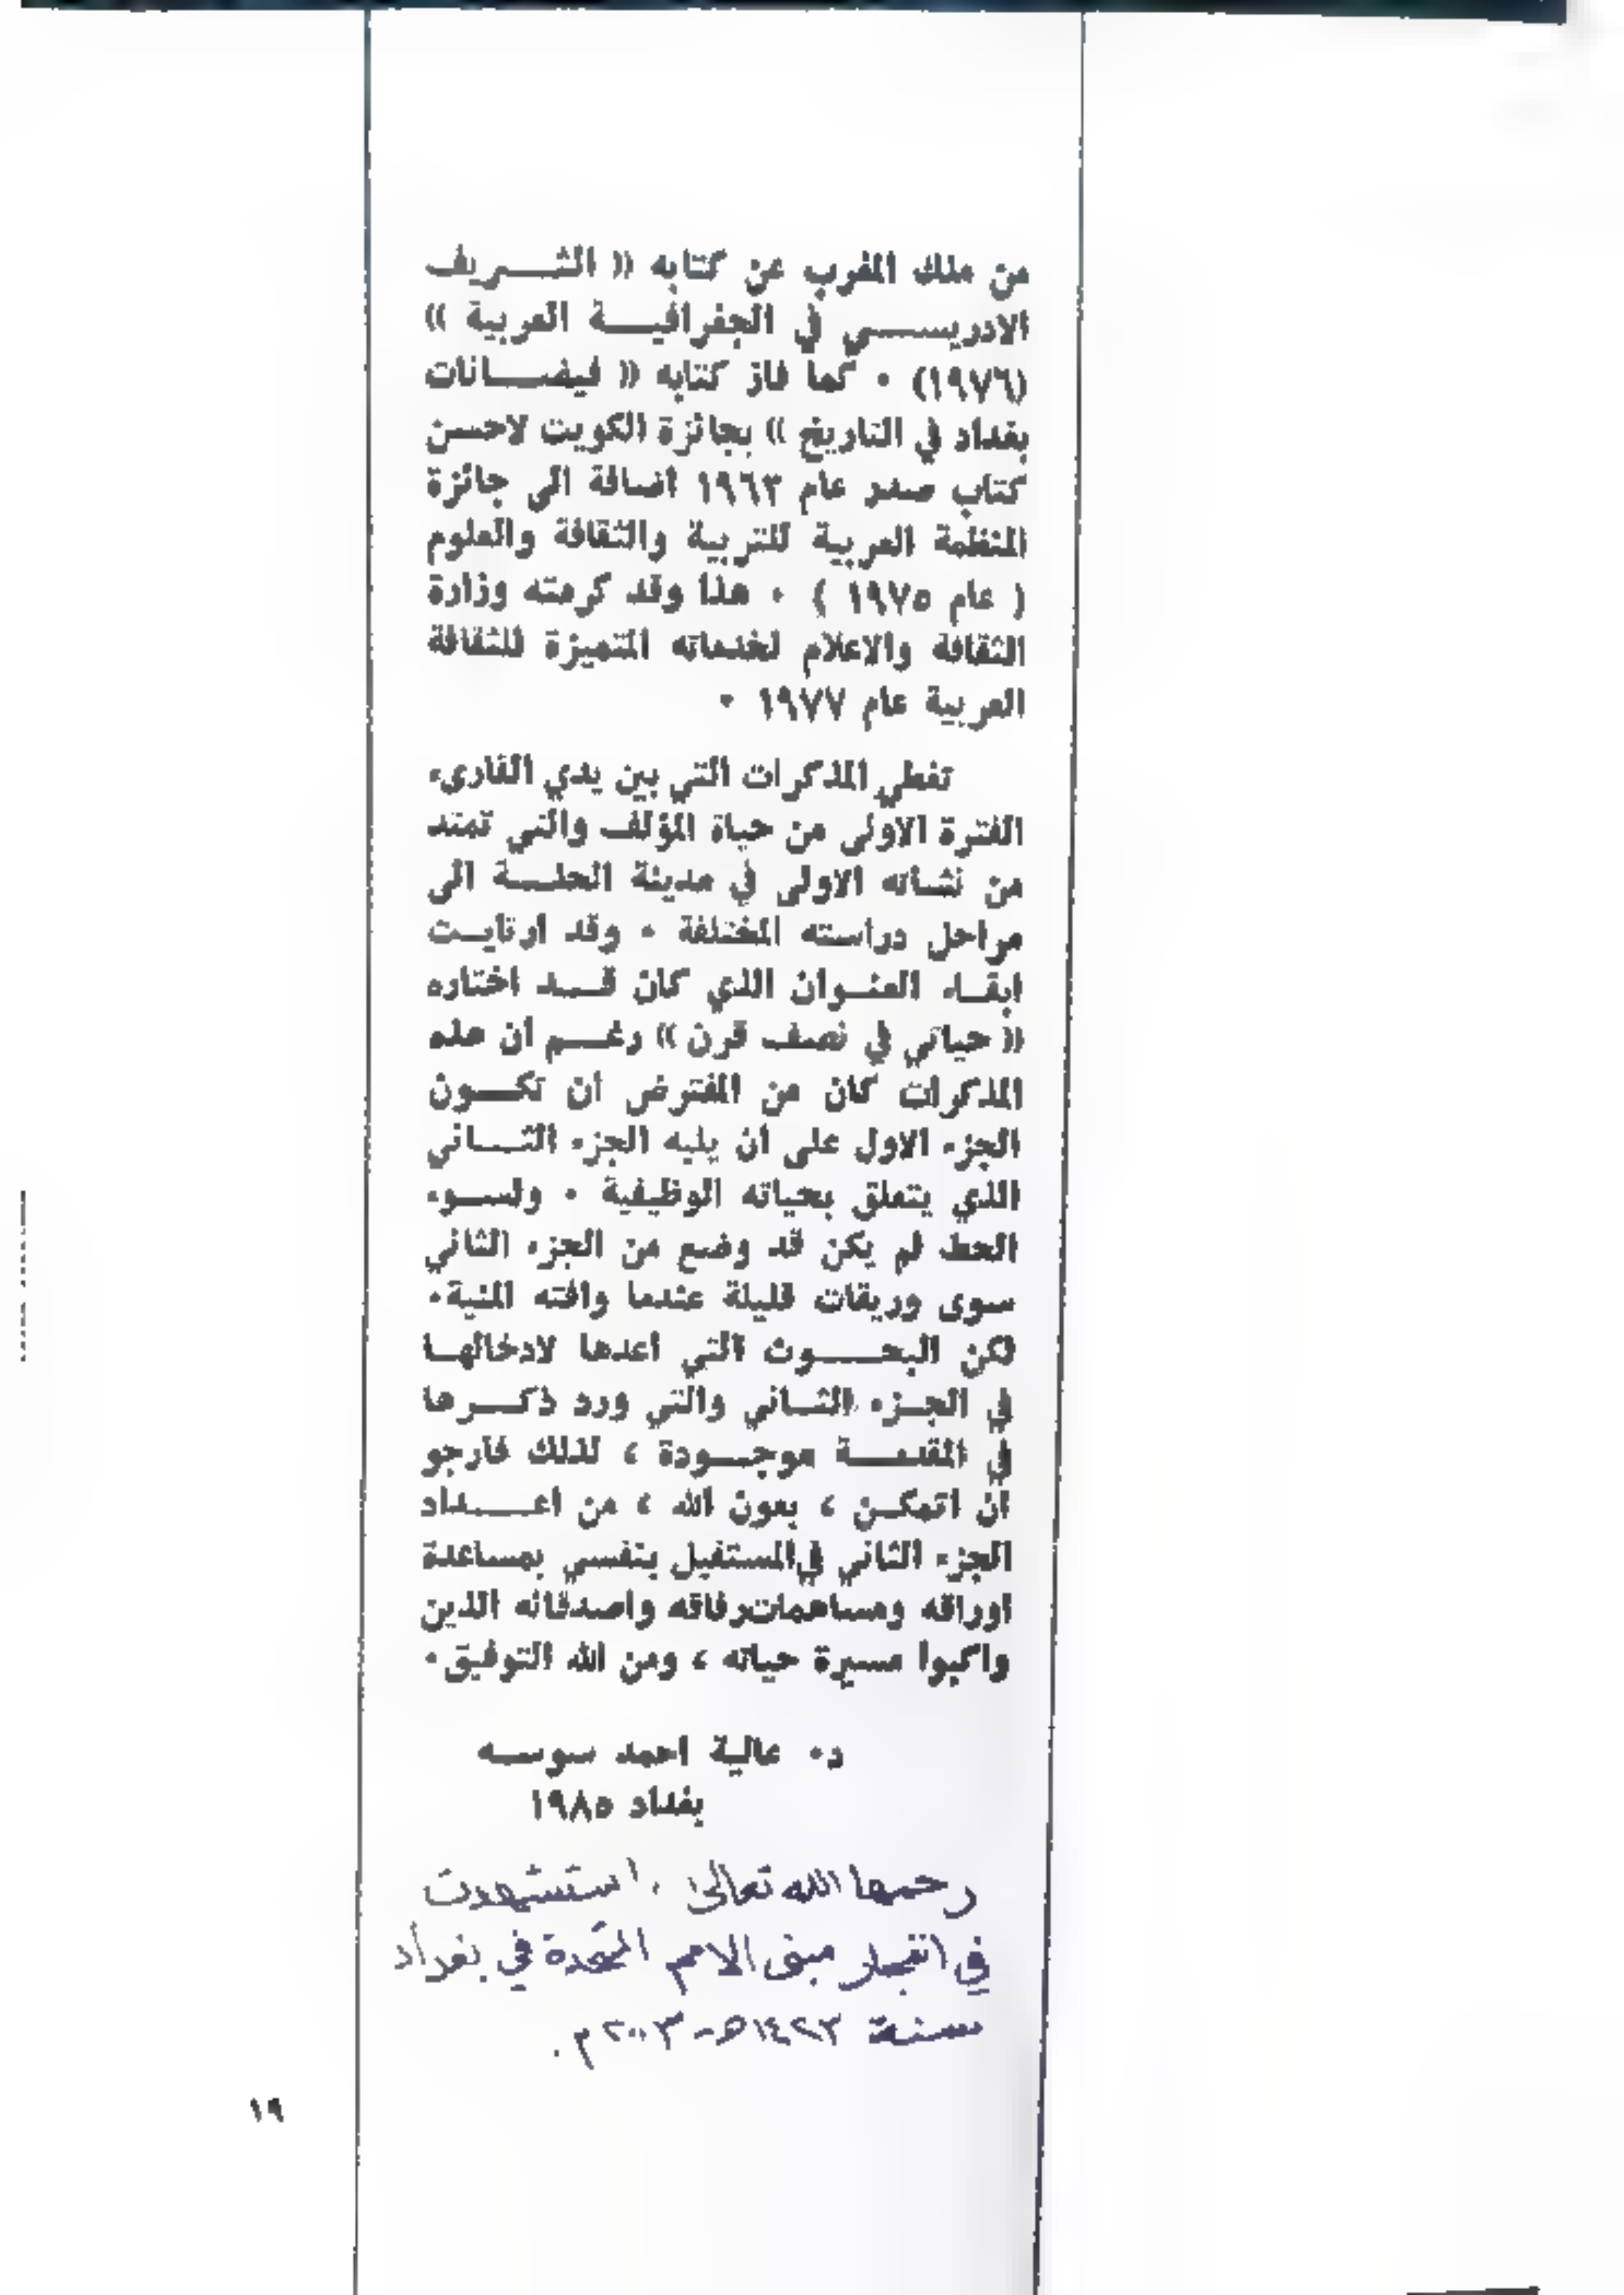 من ملك المغرب عن كتابه (( الشـــريف
الادريســـي في الجغرافيـــة العربية ))
(١٩٧٦) ٠ كما فاز كتابه (( فيضـــانات
بغداد في التاريخ )) بجائزة الكويت لاحسن
كتاب صدر عام ١٩٦٣ اضافة الى جائزة
المنظمة العربية للتربية والثقافة والعلوم
( عام ١٩٧٥ ) ٠ هذا وقد كرمته وزارة
الثقافة والاعلام لخدماته المتميزة للثقافة
العربية عام ١٩٧٧ ٠
تغطي المذكرات التي بين يدي القارىء
الفترة الاولى من حياة المؤلف والتي تمتد
من نشاته الاولى في مدينة الحلـــة الى
مراحل دراسته المختلفة ٠ وقد ارتايـت
ابقـاء العنـوان الذي كان قـــد اختاره
(( حياتي في نصف قرن )) رغـــم ان هذه
المذكرات كان من المفترض ان تكـــون
الجزء الاول على ان يليه الجزء الثـــاني
الذي يتعلق بحياته الوظيفية ٠ ولســوء
الحظ لم يكن قد وضع من الجزء الثاني
سوى وريقات قليلة عندما وافته المنية٠
لكن البحـــوث التي اعدها لادخالهـا
في الجـزء الثـاني والتي ورد ذكـــرها
في المقدمـــة موجـــودة ، لذلك فارجو
ان اتمكـن ، بعون الله ، من اعـــداد
الجزء الثاني في المستقبل بنفسي بمساعدة
اوراقه ومساهمات رفاقه واصدقائه الذين
واكبوا مسيرة حياته ، ومن الله التوفيق٠
د٠ عالية احمد سوسـه
بغداد ١٩٨٥
رحمها الله تعالى ، استشهدت
في انفجار مبنى الامم المتّحدة في بغداد
سنة ١٤٢٣هـ-٢٠٠٣م .
١٩